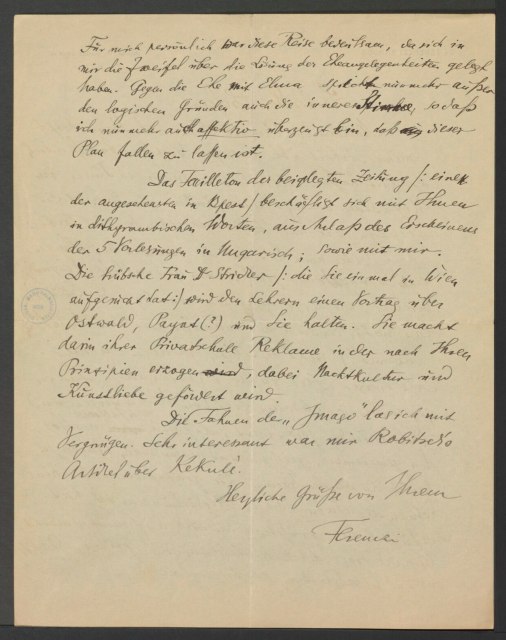 Für mich persönlich war diese Reise bedeutsam, da sich in
mir die Zweifel über die Lösung der Eheangelegenheiten gelegt
haben. Gegen die Ehe mit Elma spricht nunmehr außer
den logischen Gründen auch die innere Stimme, so daß
ich nunmehr auch affektiv überzeugt bin, daß dieser
Plan fallen zu lassen ist.
Das Feuilleton der beigelegten Zeitung /: einer
der angesehensten in Bpest / beschäftigt sich mit Ihnen
in dithyrambischen Worten, aus Anlaß des Erscheinens
der 5 Vorlesungen in Ungarisch; sowie mit mir.
Die hübsche Frau Dr Stricker /: die Sie einmal in Wien
aufgesucht hat :/ wird den Lehrern einen Vortrag über
Ostwald, Payot (?) und Sie halten. Sie macht
darin ihrer Privatschule Reklame in der nach Ihren
Prinzipien erzogen wird, dabei Nacktkultur und
Kunstliebe gefördert wird.
Die Fahnen der „Imago" las ich mit
Vergnügen. Sehr interessant war mir Robitsek's
Artikel über Kekulé.
Herzliche Grüße von Ihrem
Ferenczi